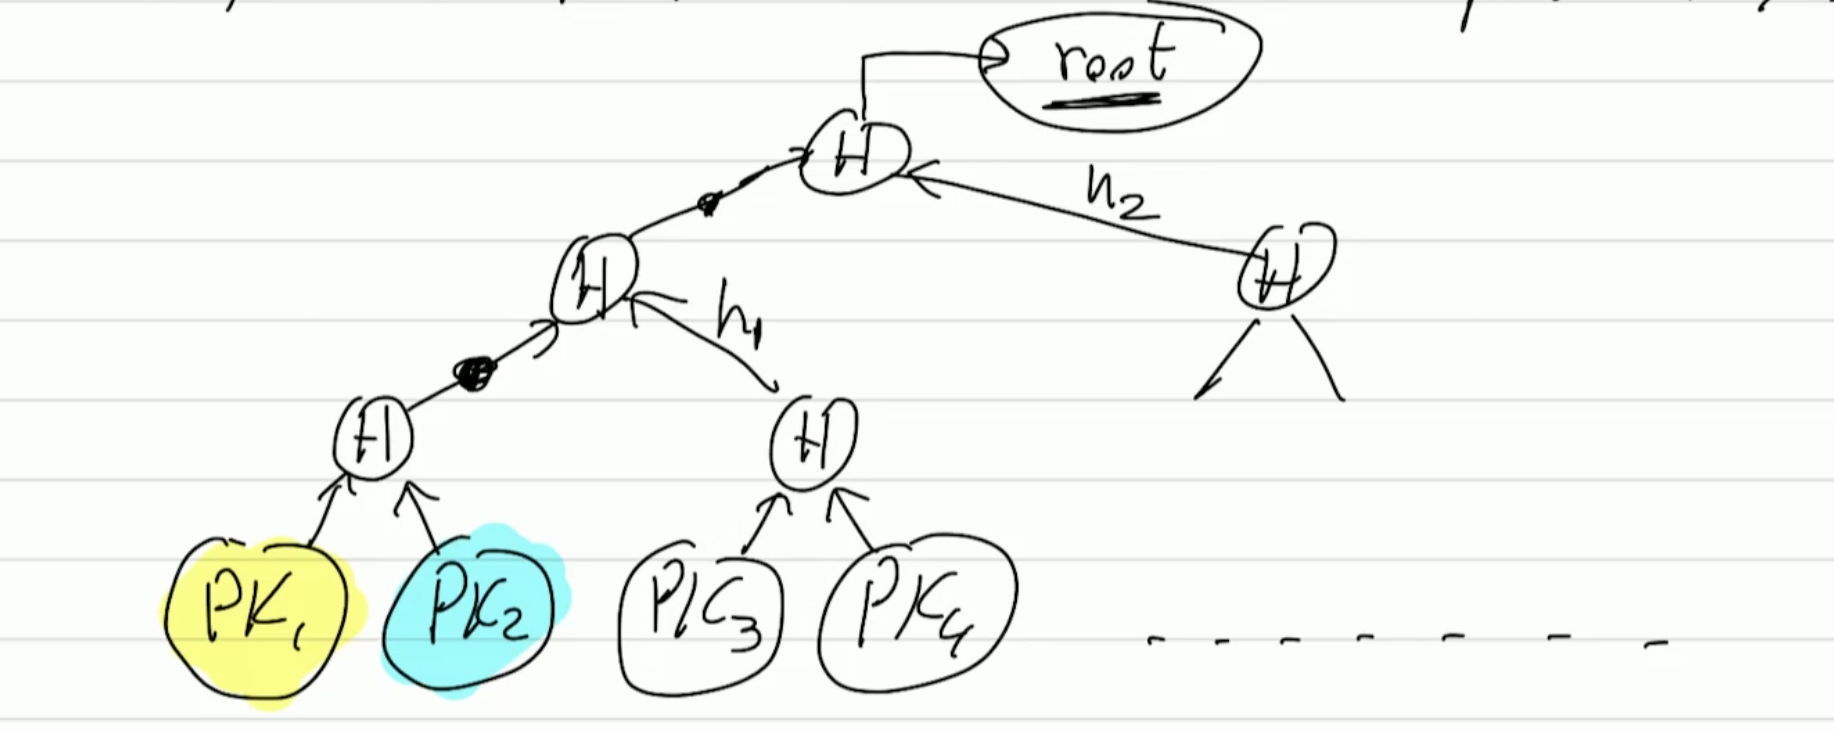 root
H
h₂
H
H
h₁
H
H
PK₁ PK₂ PK₃ PK₄ - - - - - - -